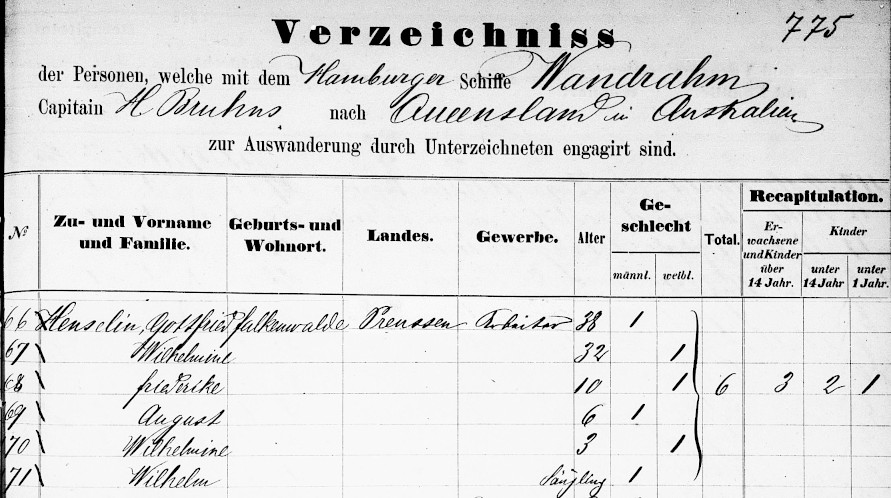 775
Verzeichniss
der Personen, welche mit dem Hamburger Schiffe Wandrahm
Capitain H Bruhns nach Queensland in Australien
zur Auswanderung durch Unterzeichneten engagirt sind.
№ Zu- und Vorname und Familie. Geburts- und Wohnort. Landes. Gewerbe. Alter Ge-schlecht männl. weibl. Total. Recapitulation. Er-wachsene und Kinder über 14 Jahr. Kinder unter 14 Jahr. unter 1 Jahr.
66 Henselin, Gottfried Falkenwalde Preussen Arbeiter 38 1
67 Wilhelmine 32 1
68 Friederike 10 1 6 3 2 1
69 August 6 1
70 Wilhelmine 3 1
71 Wilhelm Säugling 1